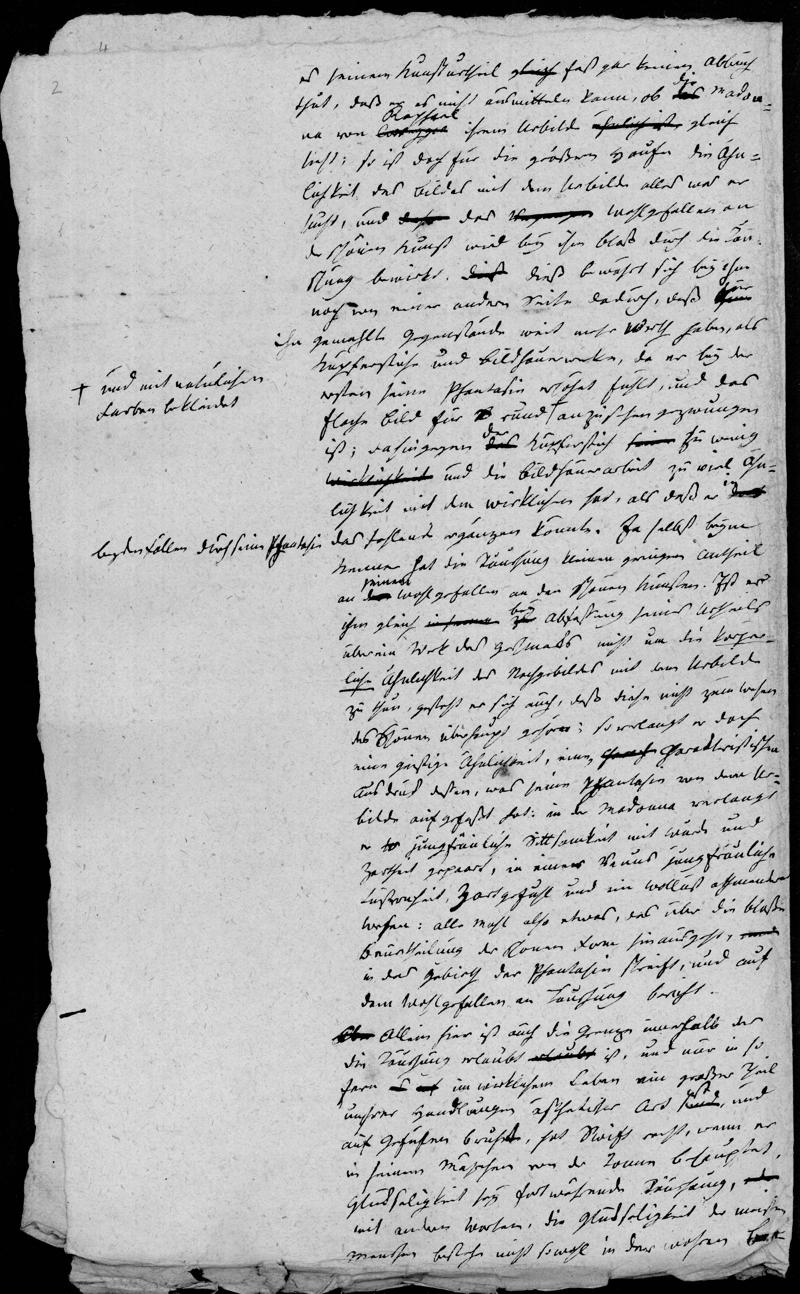 4
2
es seinem Kunsturtheil gleich fast gar keinen Abbruch
thut, daß er es nicht ausmitteln kann, ob die Madon=
na von Raphael ihrem Urbilde gleich
sieht; so ist doch für die größern Haufen die Ähn=
lichkeit des Bildes mit dem Urbilde alles was er
sucht, und das Wohlgefallen an
der schönen Kunst wird bey ihm bloß durch die Täu=
schung bewirkt. dieß bewährt sich bey ihm
noch von einer andern Seite dadurch, daß für
ihn gemahlte Gegenstände weit mehr Werth haben, als
Kupferstiche und Bildhauerwerke, da er bey den
erstern seine Phantasie erhöhet fühlt, und das
† und mit natürlichen
Farben bekleidet
flache Bild für rund † anzusehen gezwungen
ist; dahingegen der Kupferstich zu wenig
Wirklichkeit und die Bildhauerarbeit zu viel Ähn=
lichkeit mit dem wirklichen hat, als daß er in
beyden Fällen durch seine Phantasie
das fehlende ergänzen könnte. Ja selbst beym
Kenner hat die Täuschung keinen geringen Antheil
an seinem Wohlgefallen an den schönen Künsten. Ist es
ihm gleich bey Abfassung seines Urtheils
über ein Werk des Geschmacks nicht um die körper=
liche Ähnlichkeit des Nachgebildes mit dem Urbilde
zu thun, gesteht er sich auch, daß diese nicht zum Wesen
des Schönen überhaupt gehöre; so verlangt er doch
eine geistige Ähnlichkeit, einen charakteristischen
Ausdruck dessen, was seine Phantasie von dem Ur=
bilde aufgefaßt hat: in der Madonna verlangt
er jungfräuliche Sittsamkeit mit Würde und
Zartheit gepaart, in einer Venus jungfräuliche
Lüsternheit, Zartgefühl und ein Wollust athmendes
Wesen: alle Mahl also etwas, das über die bloße
Beurtheilung der schönen Form hinausgeht,
in das Gebieth der Phantasie streift, und auf
dem Wohlgefallen an Täuschung beruht.
Allein hier ist auch die Grenze innerhalb der
die Täuschung erlaubt ist, und nur in so
fern im wirklichen Leben ein großer Theil
unsrer Handlungen ästhetischer Art ist, und
auf Gefühlen beruht, hat Swift recht, wenn er
in seinem Mährchen von der Tonne behauptet,
Glückseligkeit sey fortwährende Täuschung,
mit andern Worten, die Glückseligkeit der meisten
Menschen bestehe nicht sowohl in dem wahren